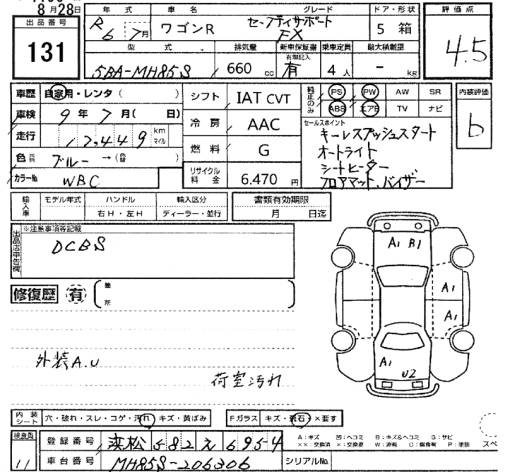 8月28日
出品番号
131
年式 車名 グレード ドア・形状 評価点
R6 7月 ワゴンR セーフティサポート FX 5 箱 4.5
型式 排気量 新車保証書 乗車定員 最大積載量
有無記入
5BA-MH85S 660cc 有 4人 - kg
車歴 自家用・レンタ( )
シフト IAT CVT
純正のみ PS PW AW SR
ABS エアB TV ナビ
内装評価
b
車検 9年7月( 日)
冷房 AAC
セールスポイント
キーレスプッシュスタート
オートライト
シートヒーター
フロアマット、バイザー
走行 17,449 km マイル
燃料 G
色 ブルー
カラーNo. WBC
リサイクル料金 6.470円
輸入車 モデル年式 ハンドル 輸入区分 書類有効期限
右H・左H ディーラー・並行 月 日迄
出品店申告欄
※注意事項等記載
DCBS
修復歴 有 箇所
A1 B1
A1
A1
A1
U2
外装A.U
荷室汚れ
内装シート 穴・破れ・スレ・コゲ・汚れ・キズ・黄ばみ
Fガラス キズ・飛石・×要す
検査員
11
登録番号 浜松 582 え 6954
車台番号 MH85S-206306
シリアルNo.
A:キズ U:凹ヘコミ B:キズ&ヘコミ G:サビ